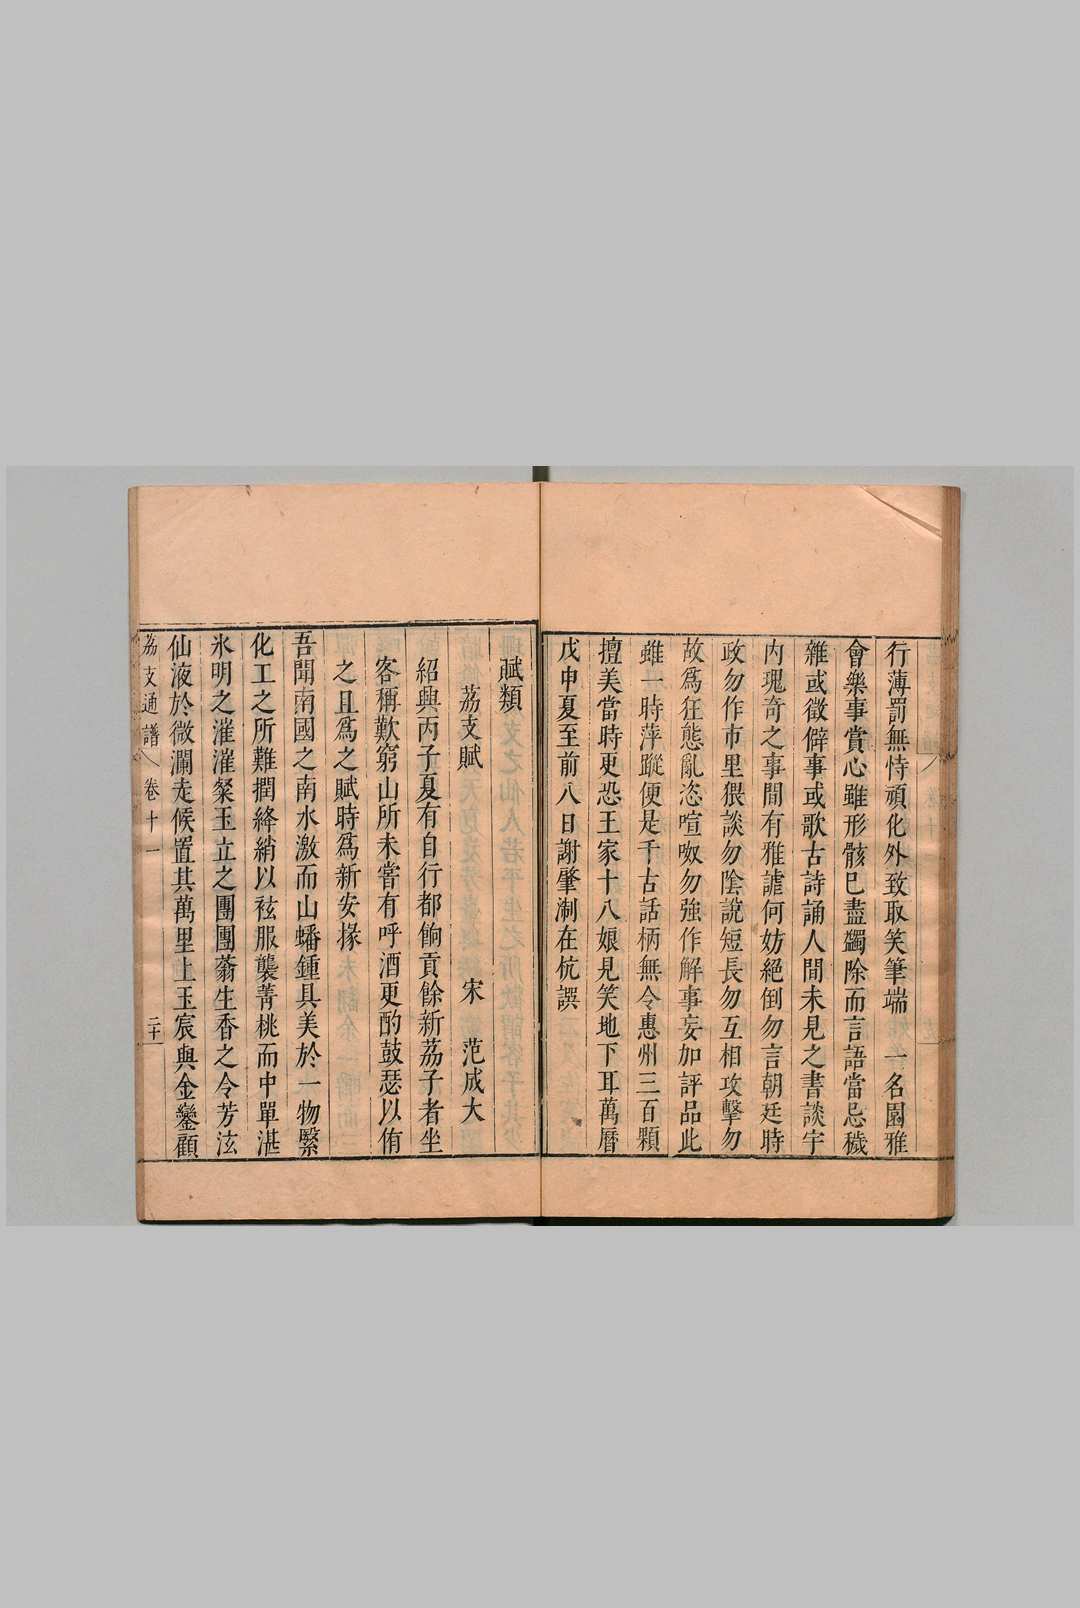 行薄罰無恃頑化外致取笑筆端一名園雅
會樂事賞心雖形骸已盡蠲除而言語當忌穢
雜或徵僻事或歌古詩誦人間未見之書談宇
內瑰奇之事間有雅謔何妨絕倒勿言朝廷時
政勿作市里猥談勿陰說短長勿互相攻擊勿
故爲狂態亂恣喧呶勿強作解事妄加評品此
雖一時萍蹤便是千古話柄無令惠州三百顆
擅美當時更恐王家十八娘見笑地下耳萬曆
戊申夏至前八日謝肇淛在杭譔
賦類
荔支賦 宋 范成大
紹興丙子夏有自行都餉貢餘新荔子者坐
客稱歎窮山所未嘗有呼酒更酌鼓瑟以侑
之且爲之賦時爲新安掾
吾聞南國之南水激而山蟠鍾具美於一物繄
化工之所難擱絳綃以袨服襲菁桃而中單湛
氷明之漼漼粲玉立之團團蓊生香之令芳泫
仙液於微瀾走候置其萬里上玉宸與金鑾顧
荔支通譜 卷十一 二十